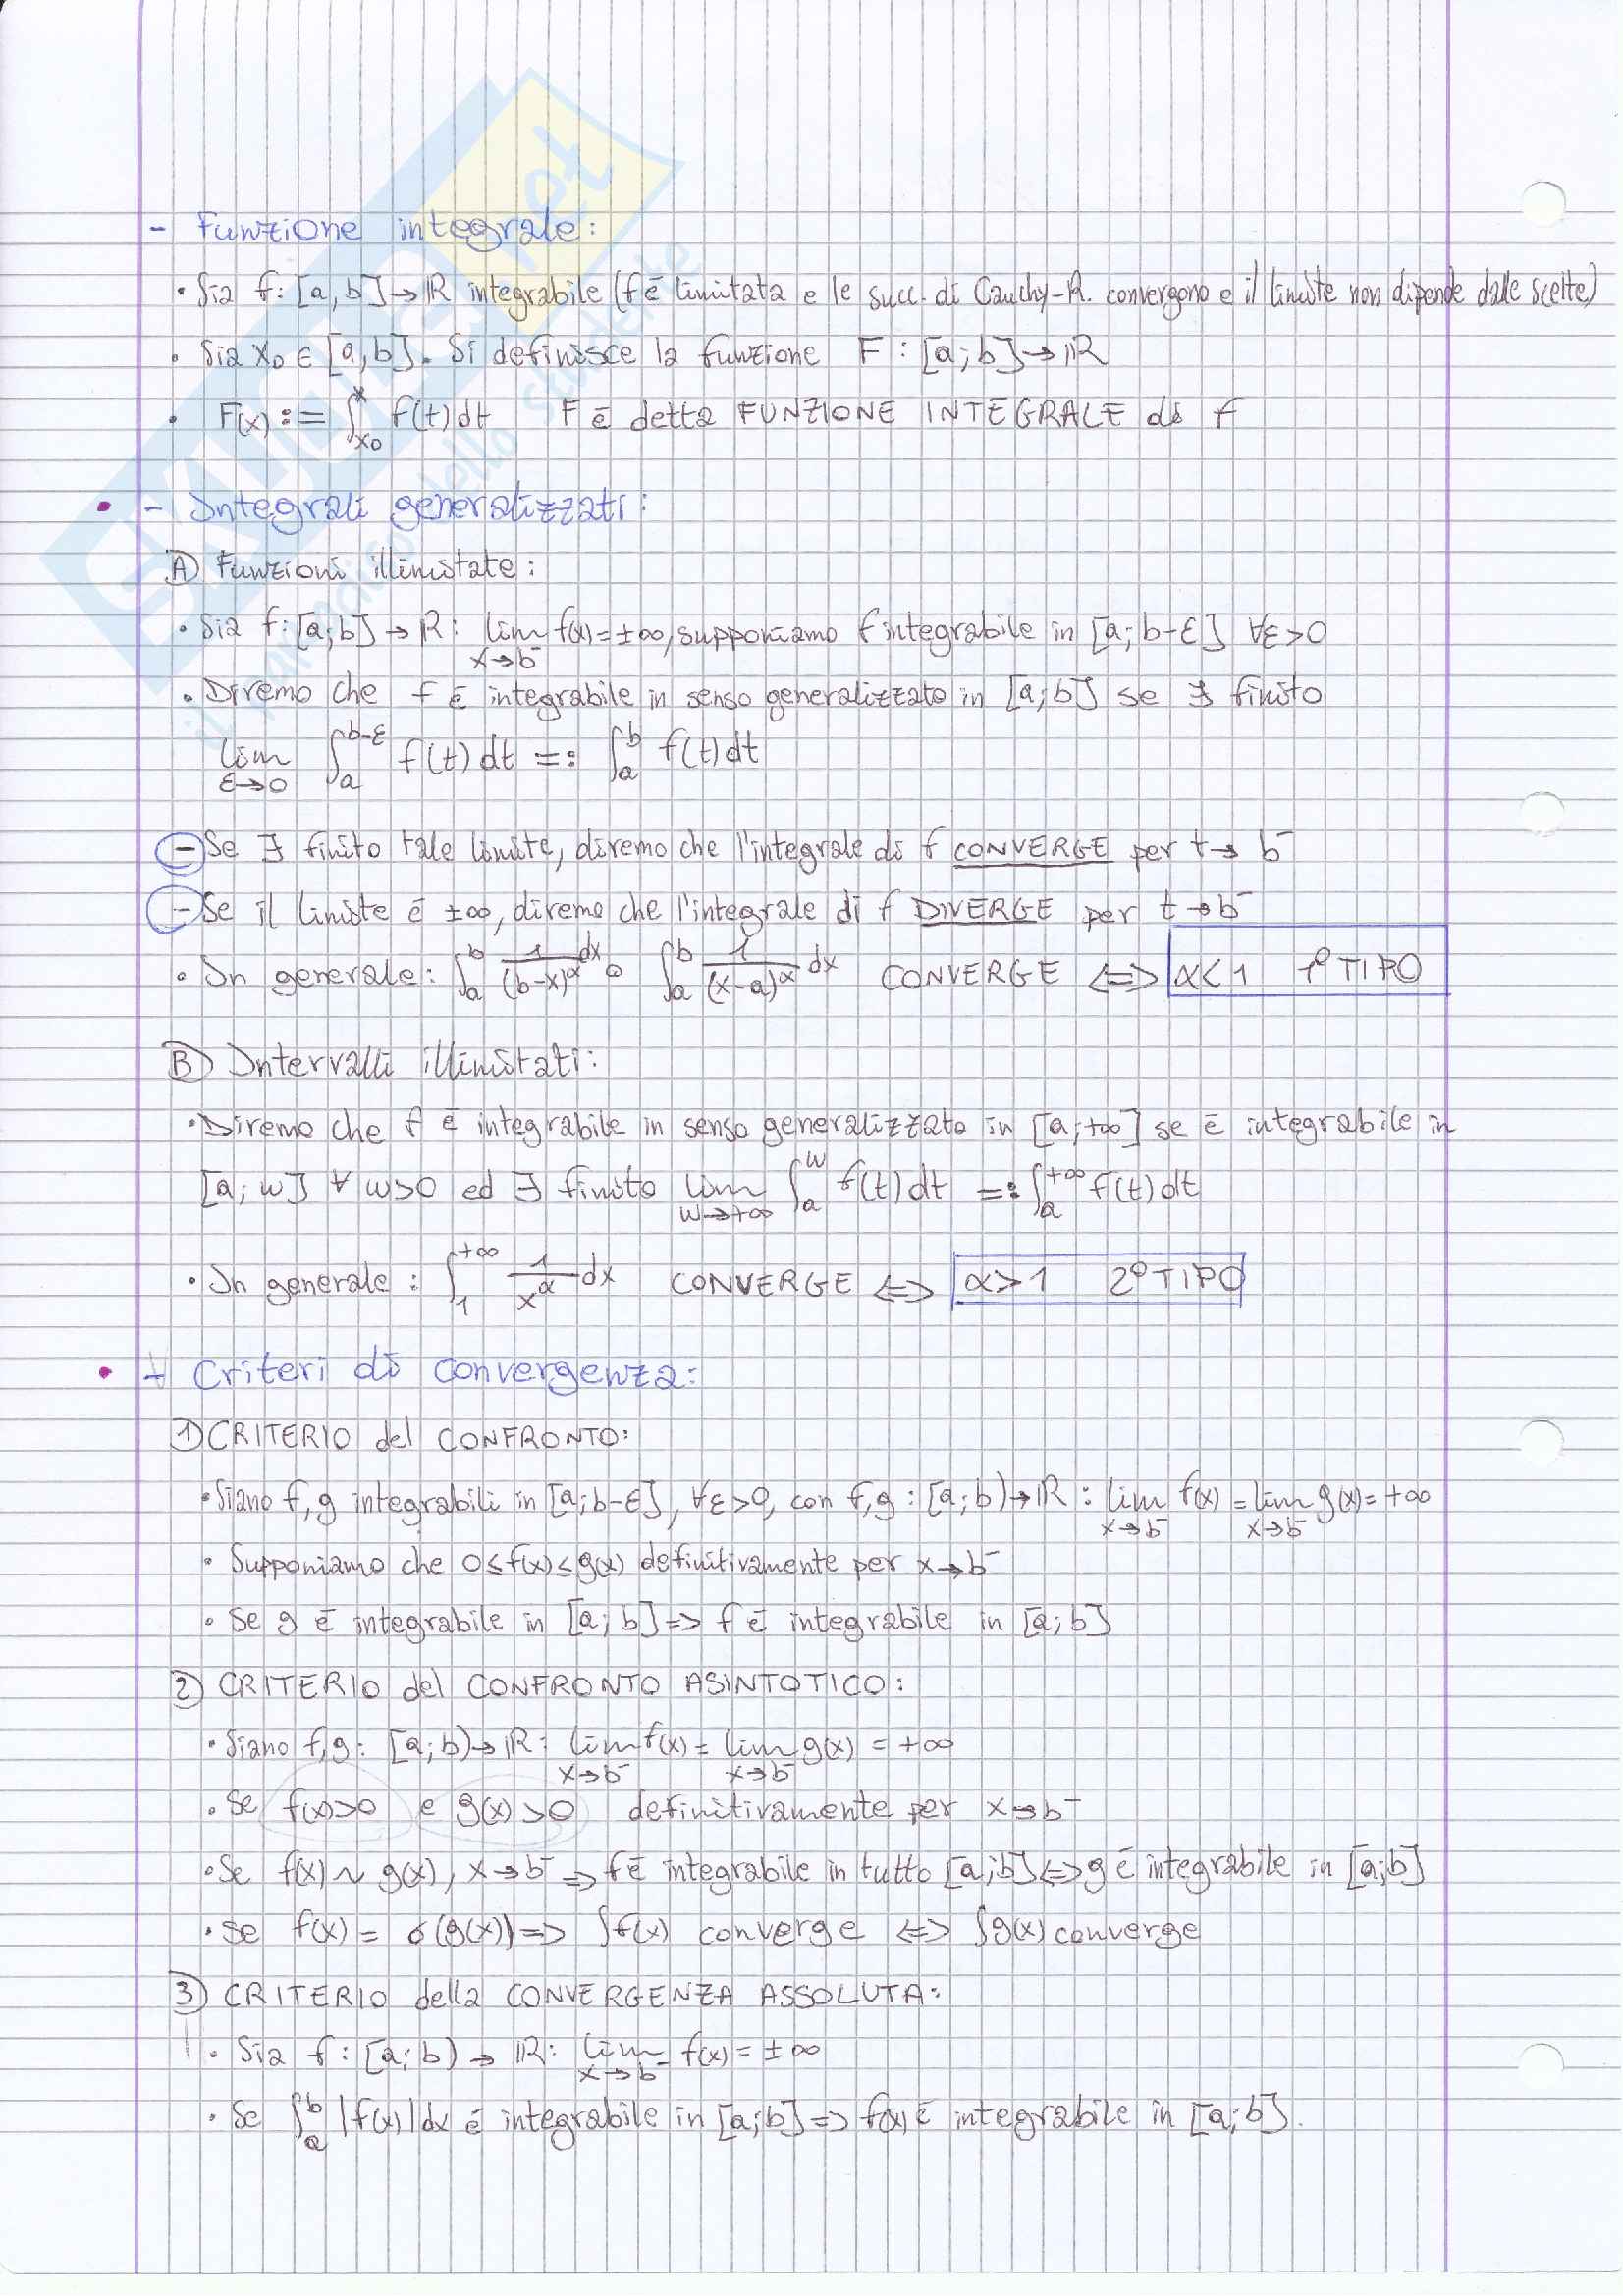 - Funzione integrale:
• Sia f: [a, b] → ℝ integrabile (f è limitata e le succ. di Cauchy-R. convergono e il limite non dipende dalle scelte)
• Sia x₀ ∈ [a, b]. Si definisce la funzione F : [a; b] → ℝ
• F(x) := ∫_{x₀}^{x} f(t) dt F è detta FUNZIONE INTEGRALE di f
• - Integrali generalizzati:
A) Funzioni illimitate:
• Sia f: [a; b] → ℝ : lim_{x→b⁻} f(x) = ±∞, supponiamo f integrabile in [a; b-ε] ∀ε>0
• Diremo che f è integrabile in senso generalizzato in [a; b] se ∃ finito
lim_{ε→0} ∫_{a}^{b-ε} f(t) dt =: ∫_{a}^{b} f(t) dt
- Se ∃ finito tale limite, diremo che l'integrale di f CONVERGE per t → b⁻
- Se il limite è ±∞, diremo che l'integrale di f DIVERGE per t → b⁻
• In generale: ∫_{a}^{b} 1/(b-x)^α dx o ∫_{a}^{b} 1/(x-a)^α dx CONVERGE ⇔ α<1 1° TIPO
B) Intervalli illimitati:
• Diremo che f è integrabile in senso generalizzato in [a; +∞] se è integrabile in
[a; w] ∀ w>0 ed ∃ finito lim_{w→+∞} ∫_{a}^{w} f(t) dt =: ∫_{a}^{+∞} f(t) dt
• In generale : ∫_{1}^{+∞} 1/x^α dx CONVERGE ⇔ α>1 2° TIPO
• + Criteri di convergenza:
1) CRITERIO del CONFRONTO:
• Siano f, g integrabili in [a; b-ε], ∀ε>0, con f, g : [a; b) → ℝ : lim_{x→b⁻} f(x) = lim_{x→b⁻} g(x) = +∞
• Supponiamo che 0 ≤ f(x) ≤ g(x) definitivamente per x → b⁻
• Se g è integrabile in [a; b] => f è integrabile in [a; b]
2) CRITERIO del CONFRONTO ASINTOTICO:
• Siano f, g : [a; b) → ℝ : lim_{x→b⁻} f(x) = lim_{x→b⁻} g(x) = +∞
• Se f(x)>0 e g(x)>0 definitivamente per x → b⁻
• Se f(x) ~ g(x), x → b⁻ => f è integrabile in tutto [a; b] ⇔ g è integrabile in [a; b]
• Se f(x) = o(g(x)) => ∫f(x) converge ⇔ ∫g(x) converge
3) CRITERIO della CONVERGENZA ASSOLUTA:
• Sia f : [a; b) → ℝ : lim_{x→b⁻} f(x) = ±∞
• Se ∫_{a}^{b} |f(x)| dx è integrabile in [a; b] => f(x) è integrabile in [a; b].